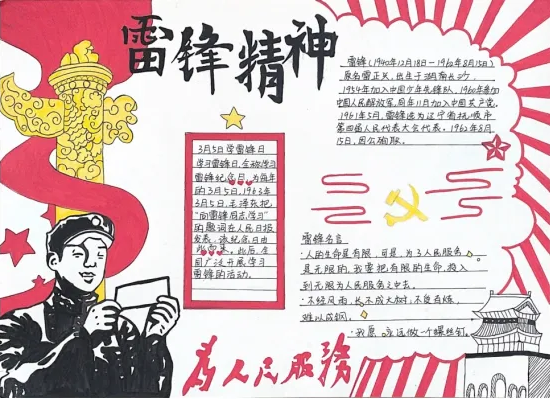 雷锋精神
雷锋(1940年12月18日-1962年8月15日)
原名雷正兴,出生于湖南长沙,
1954年加入中国少年先锋队,1960年参加
中国人民解放军,同年11月加入中国共产党。
1961年5月,雷锋选为辽宁省抚顺市
第四届人民代表大会代表。1962年8月
15日,因公殉职。
3月5日学雷锋日
学习雷锋日,全称学习
雷锋纪念日,为每年
的3月5日,1963年
3月5日,毛泽东把
"向雷锋同志学习"
的题词在人民日报
发表,该纪念日由
此而来。此后,全
国广泛开展学习
雷锋的活动。
雷锋名言
·人的生命是有限,可是,为了人民服务
是无限的,我要把有限的生命,投入
到无限为人民服务之中去。
·不经风雨,长不成大树,不受百炼,
难以成钢。
·我愿永远做一个螺丝钉。
为人民服務